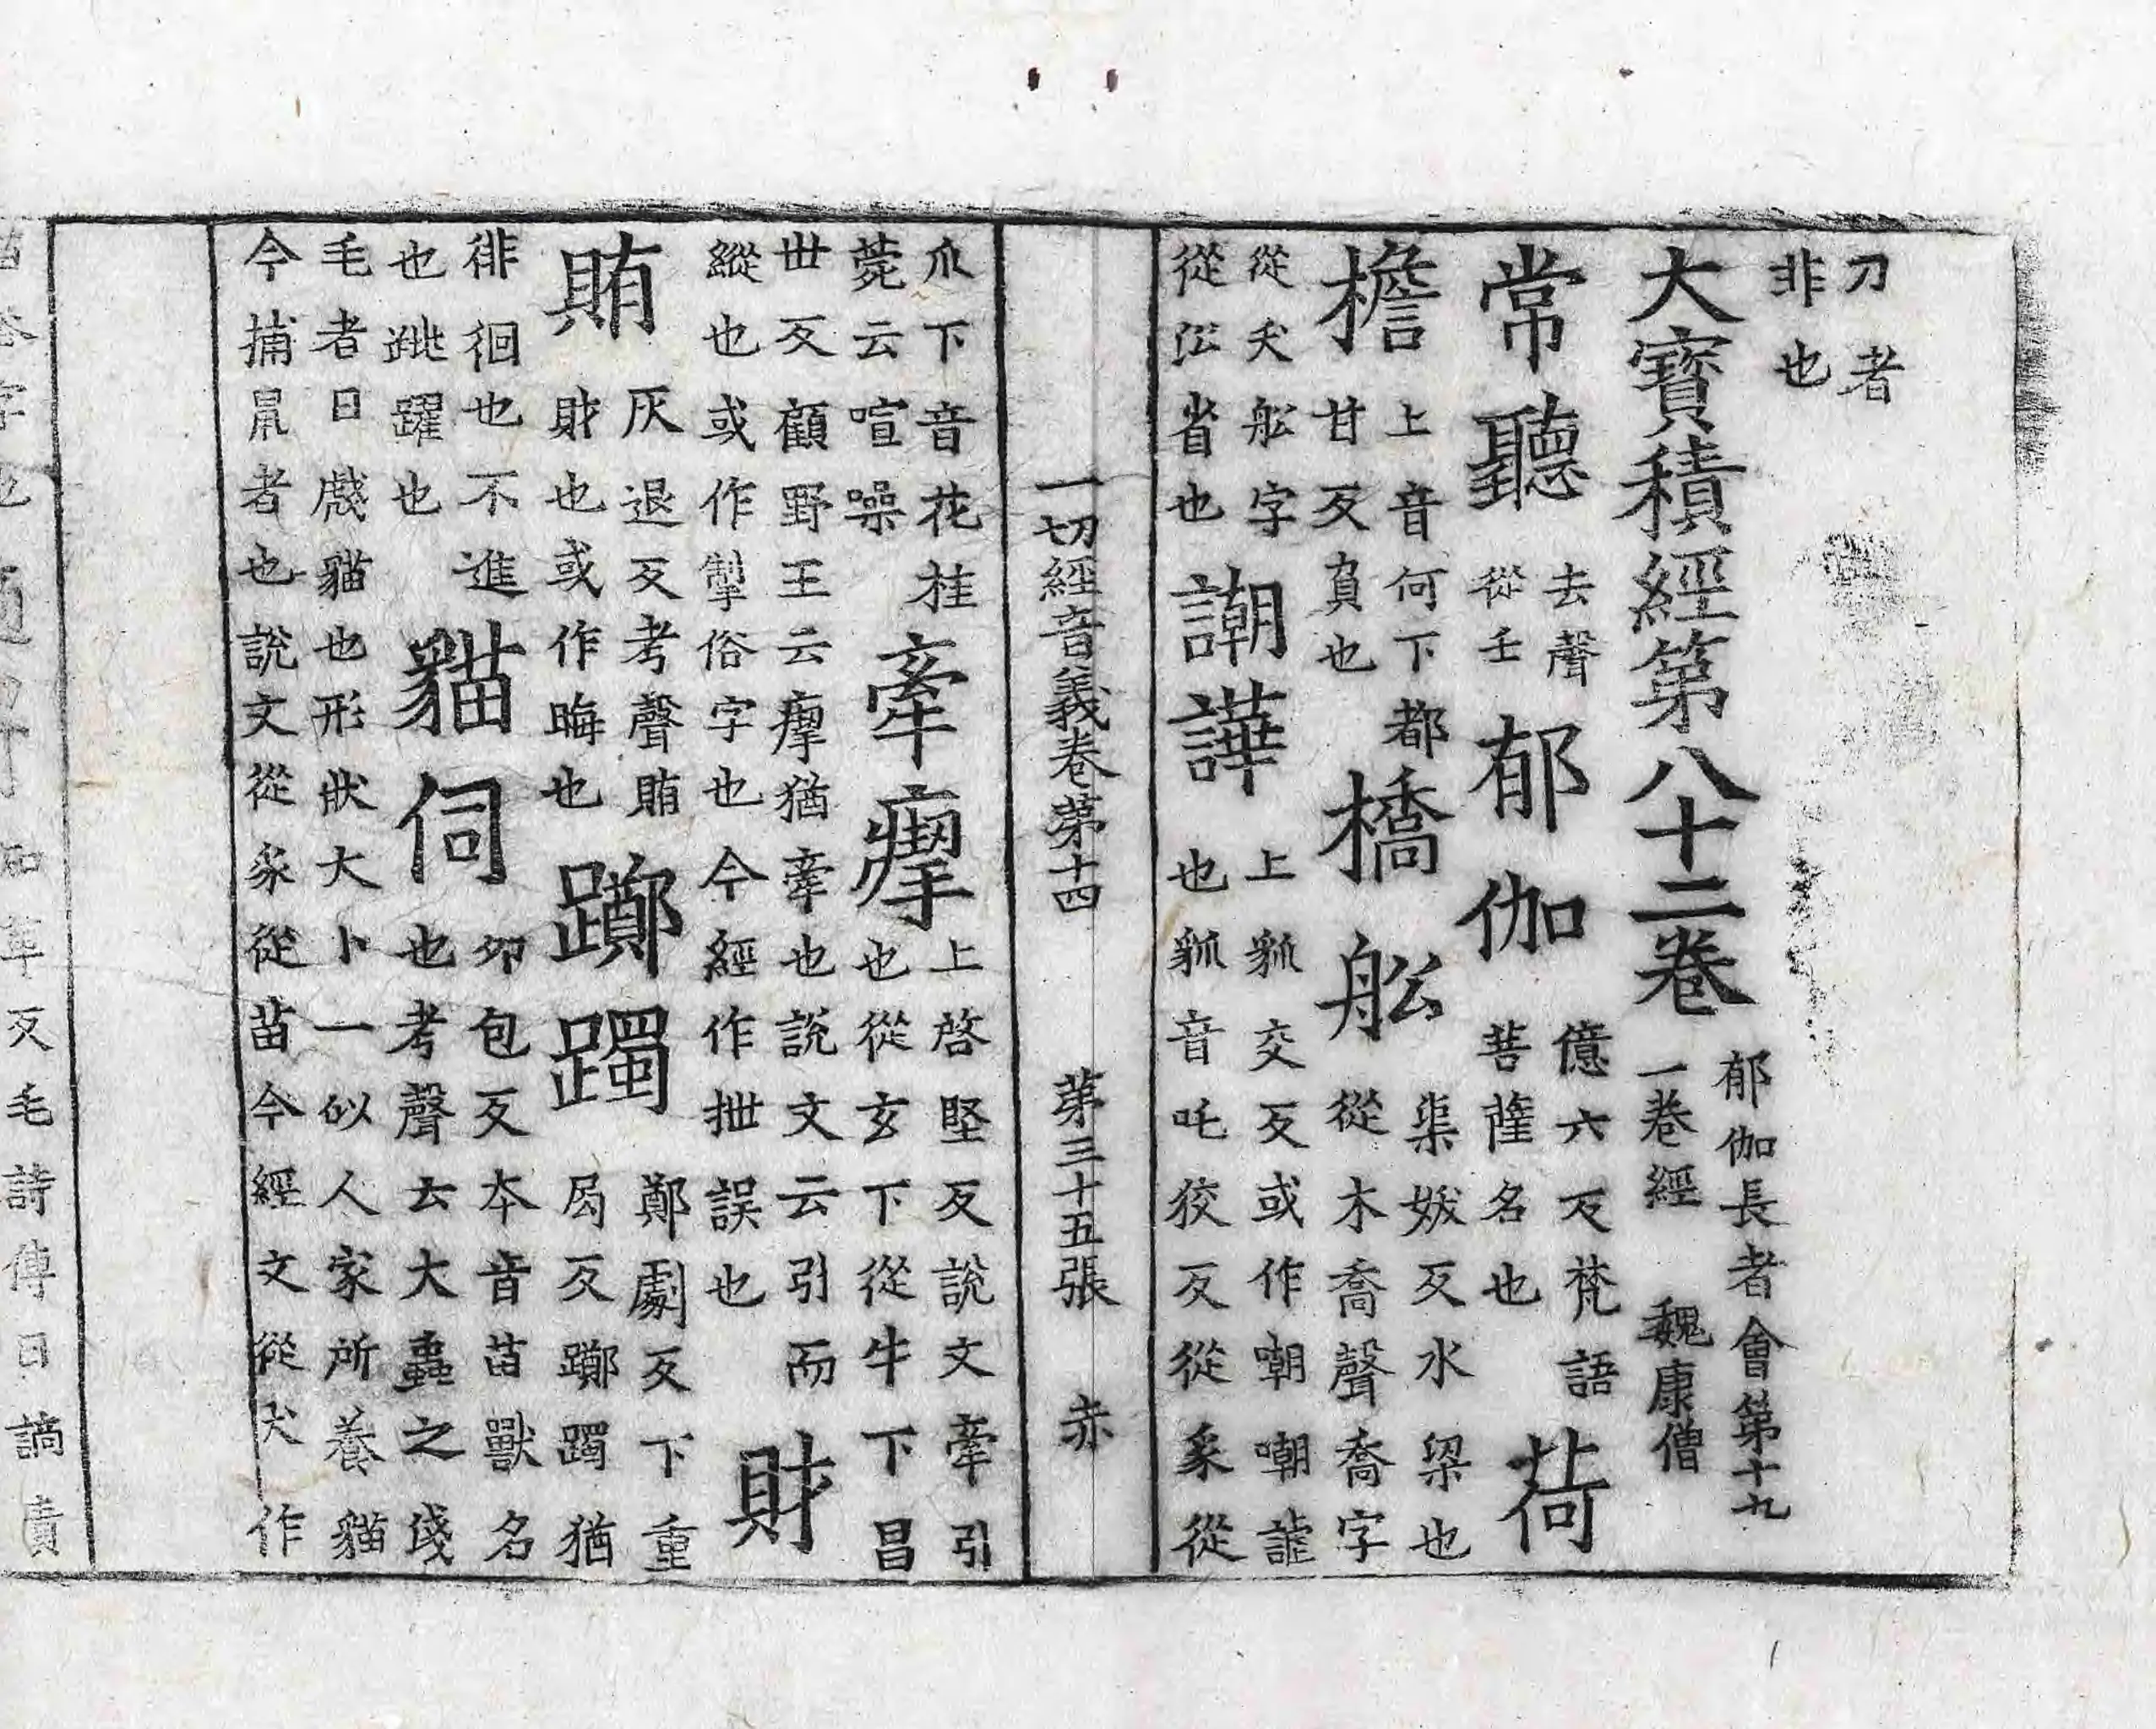 刀者
非也
大寶積經第八十二卷 郁伽長者會第十九
一卷經 魏康僧
常聽 去聲
從壬
郁伽 億六反梵語
菩薩名也
荷
檐 上音何下都
甘反負也
橋舩 渠妖反水梁也
從木喬聲喬字
從夭舩字
從�co省也
謿譁 上 交反或作嘲嘲謔
也 音吒狡反從豸從
一切經音義卷第十四 第三十五張 赤
爪下音花桂
菀云喧噪
牽瘈 上啓堅反說文牽引
也從玄下從牛下昌
世反顧野王云瘈猶牽也說文云引而
縱也或作掣俗字也今經作抴誤也
財
賄 灰退反考聲賄
財也或作晦也
躑躅 鄭劇反下重
局反躑躅猶
徘徊也不進
也跳躍也
貓伺 卯包反本音苗獸名
也考聲云大蟲之淺
毛者曰虥貓也形狀大小一似人家所養貓
今捕鼠者也說文從豸從苗今經文從犬作
反毛詩傳曰謫責